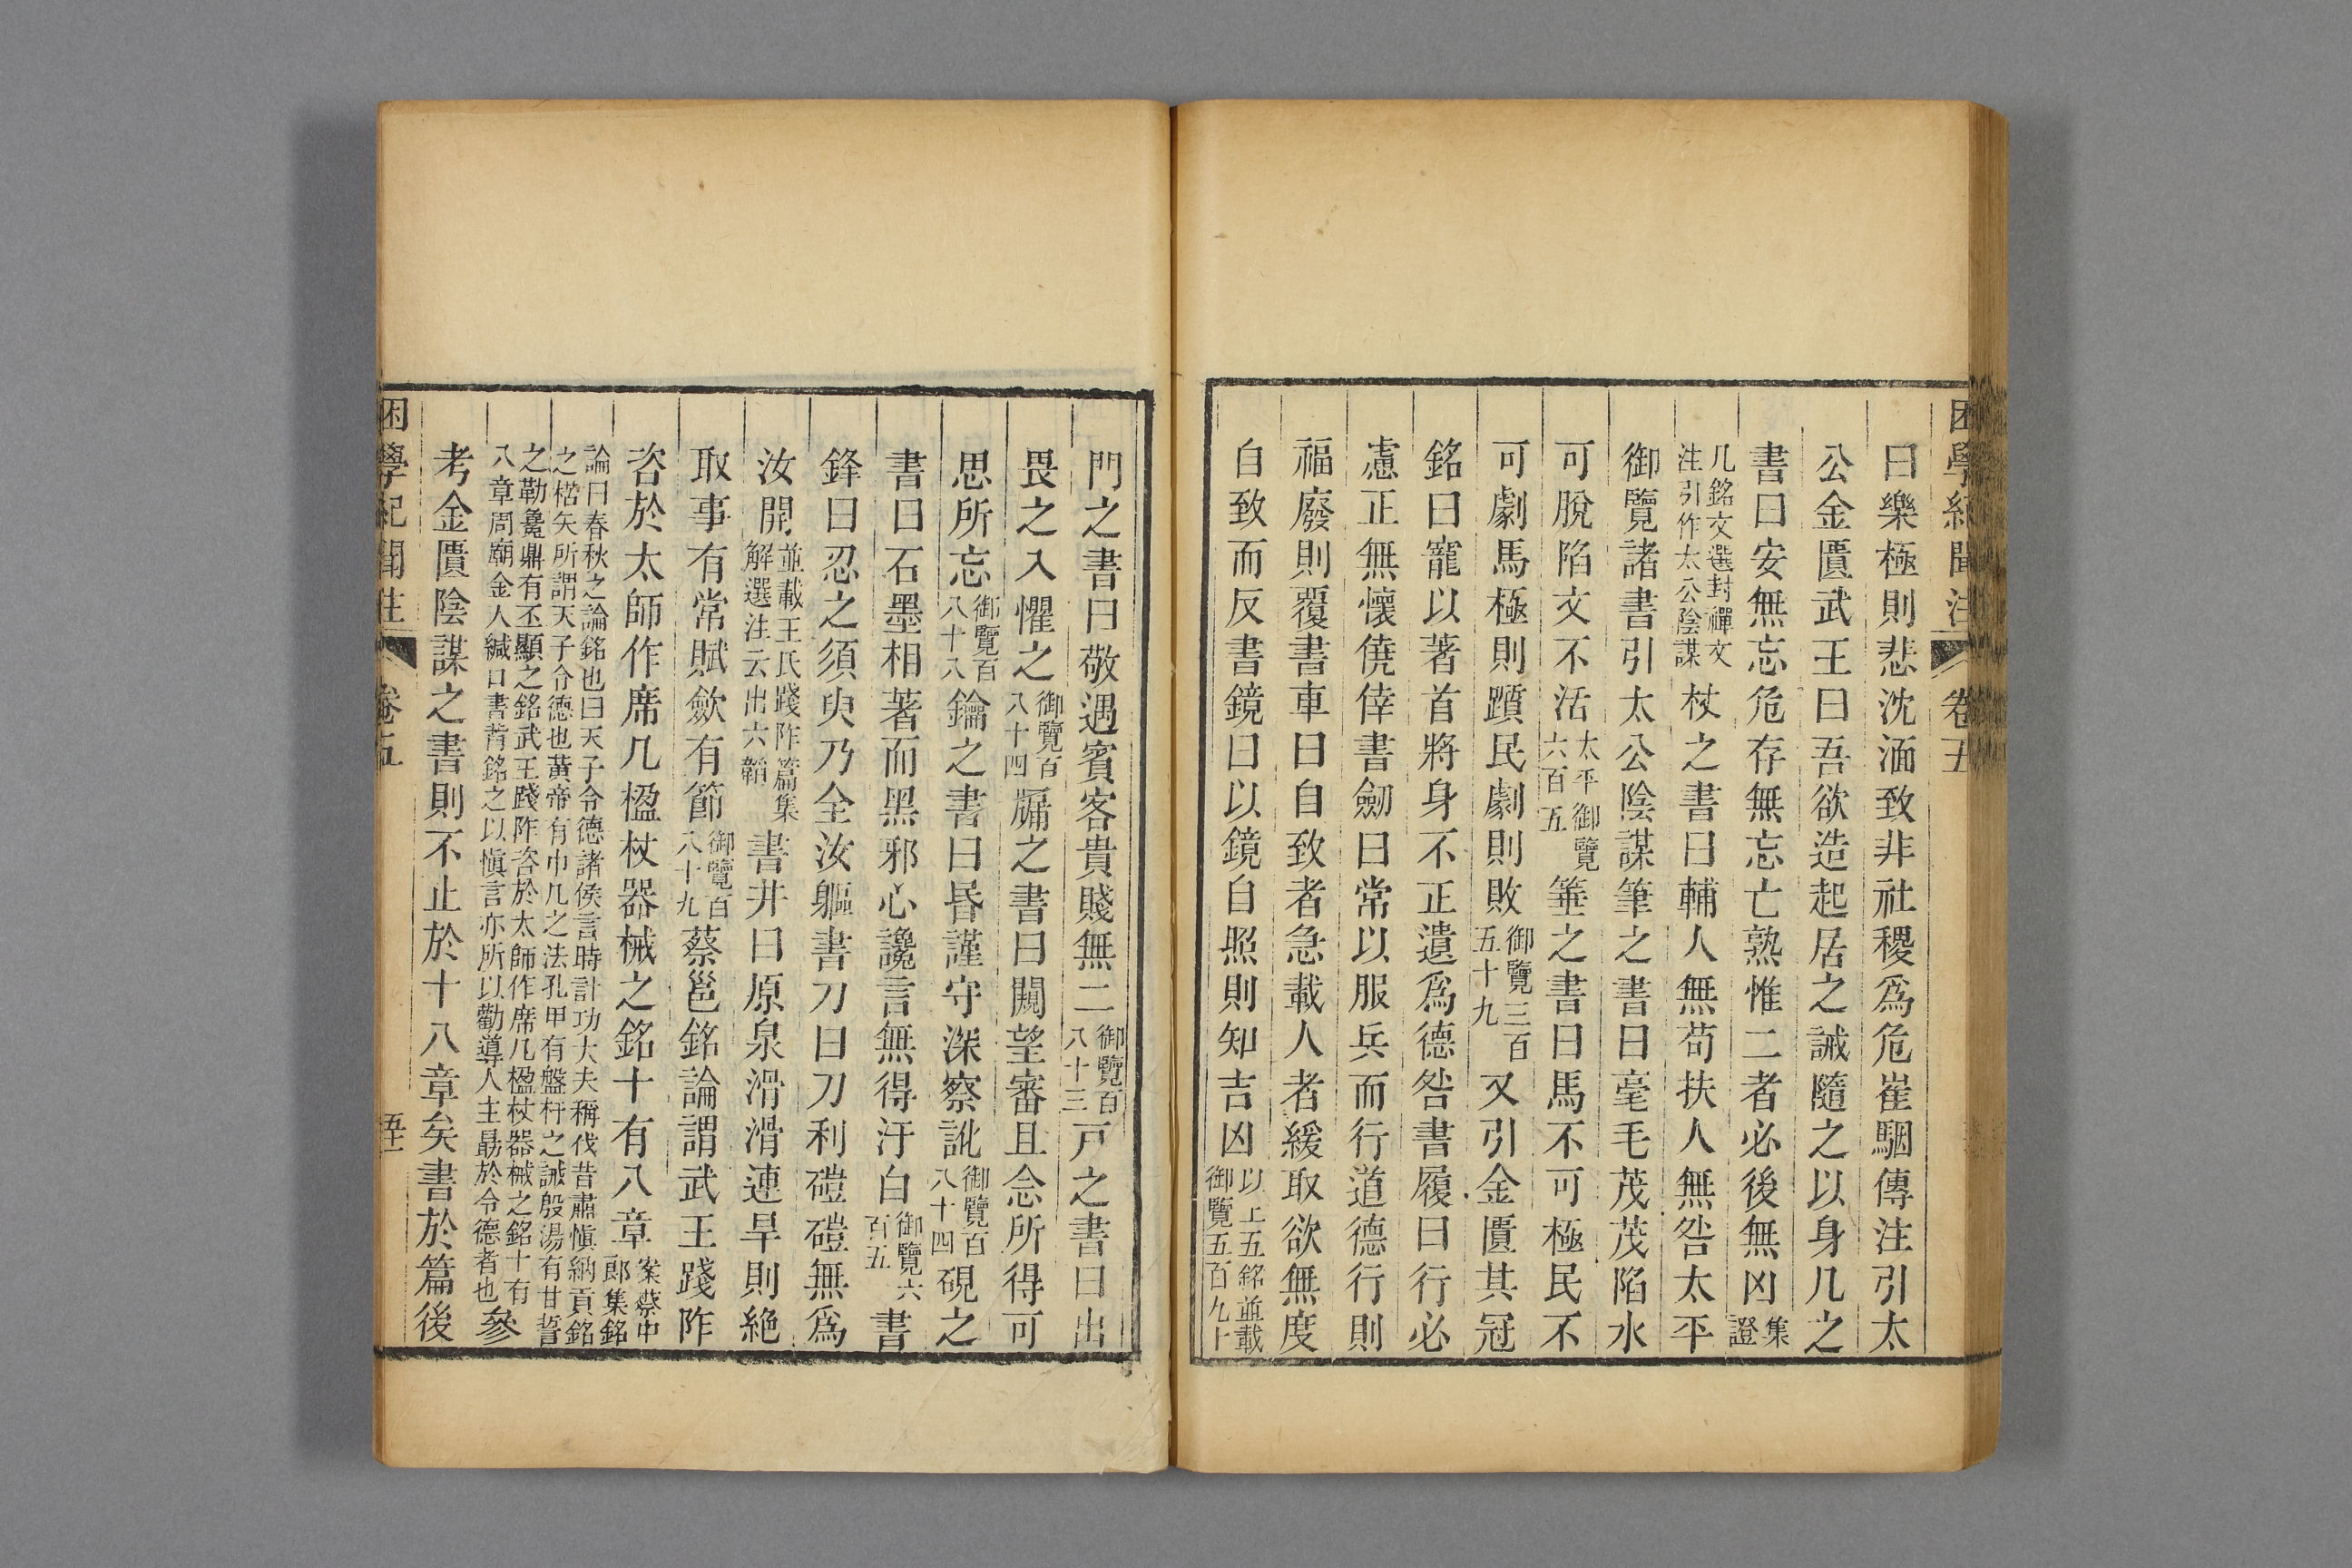 困學紀聞注 卷五
曰樂極則悲沈湎致非社稷爲危崔駰傳注引太
公金匱武王曰吾欲造起居之誡隨之以身几之
書曰安無忘危存無忘亡熟惟二者必後無凶集證
几銘文選封禪文注引作太公陰謀杖之書曰輔人無苟扶人無咎太平
御覽諸書引太公陰謀筆之書曰毫毛茂茂陷水
可脫陷文不活太平御覽六百五箠之書曰馬不可極民不
可劇馬極則躓民劇則敗御覽三百五十九又引金匱其冠
銘曰寵以著首將身不正遺爲德咎書履曰行必
慮正無懷僥倖書劒曰常以服兵而行道德行則
福廢則覆書車曰自致者急載人者緩取欲無度
自致而反書鏡曰以鏡自照則知吉凶以上五銘並載御覽五百九十
門之書曰敬遇賓客貴賤無二御覽百八十三戸之書曰出
畏之入懼之御覽百八十四牖之書曰闚望審且念所得可
思所忘御覽百八十八鑰之書曰昬謹守深察訛御覽百八十四硯之
書曰石墨相著而黑邪心讒言無得汙白御覽六百五書
鋒曰忍之須臾乃全汝軀書刀曰刀利磑磑無爲
汝開並載王氏踐阼篇集解選注云出六韜書井曰原泉滑滑連旱則絶
取事有常賦歛有節御覽百八十九蔡邕銘論謂武王踐阼
咨於太師作席几楹杖器械之銘十有八章案蔡中郎集銘
論曰春秋之論銘也曰天子令德諸侯言時計功大夫稱伐昔肅愼納貢銘
之楛矢所謂天子令德也黃帝有巾几之法孔甲有盤杅之誡殷湯有甘誓
之勒毚鼎有丕顯之銘武王踐阼咨於太師作席几楹杖器械之銘十有
八章周廟金人緘口書背銘之以愼言亦所以勸導人主勗於令德者也參
考金匱陰謀之書則不止於十八章矣書於篇後
困學紀聞注 卷五